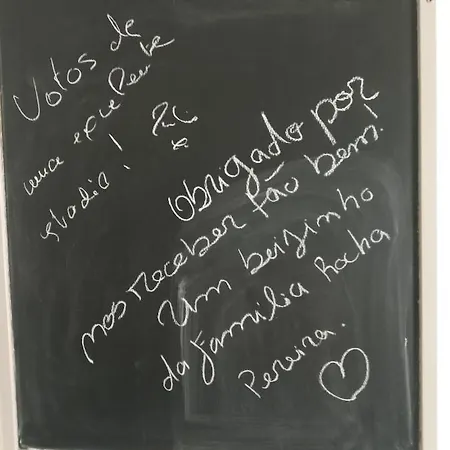 Votos de
uma excelente
estadia!
Obrigado por
nos receber tão bem!
Um beizinho
da família Rocha
Pereira.